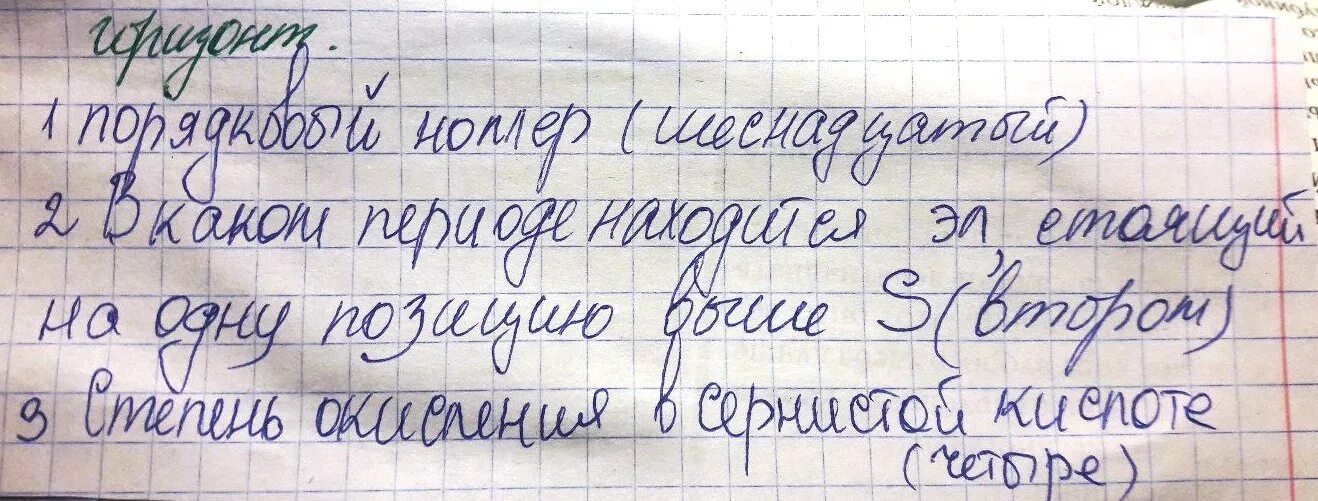 горизонт.
1 порядковый номер (шеснадцатый)
2 В каком периоде находится эл, стоящий
на одну позицию выше S (втором)
3 Степень окисления в сернистой кислоте
(четыре)